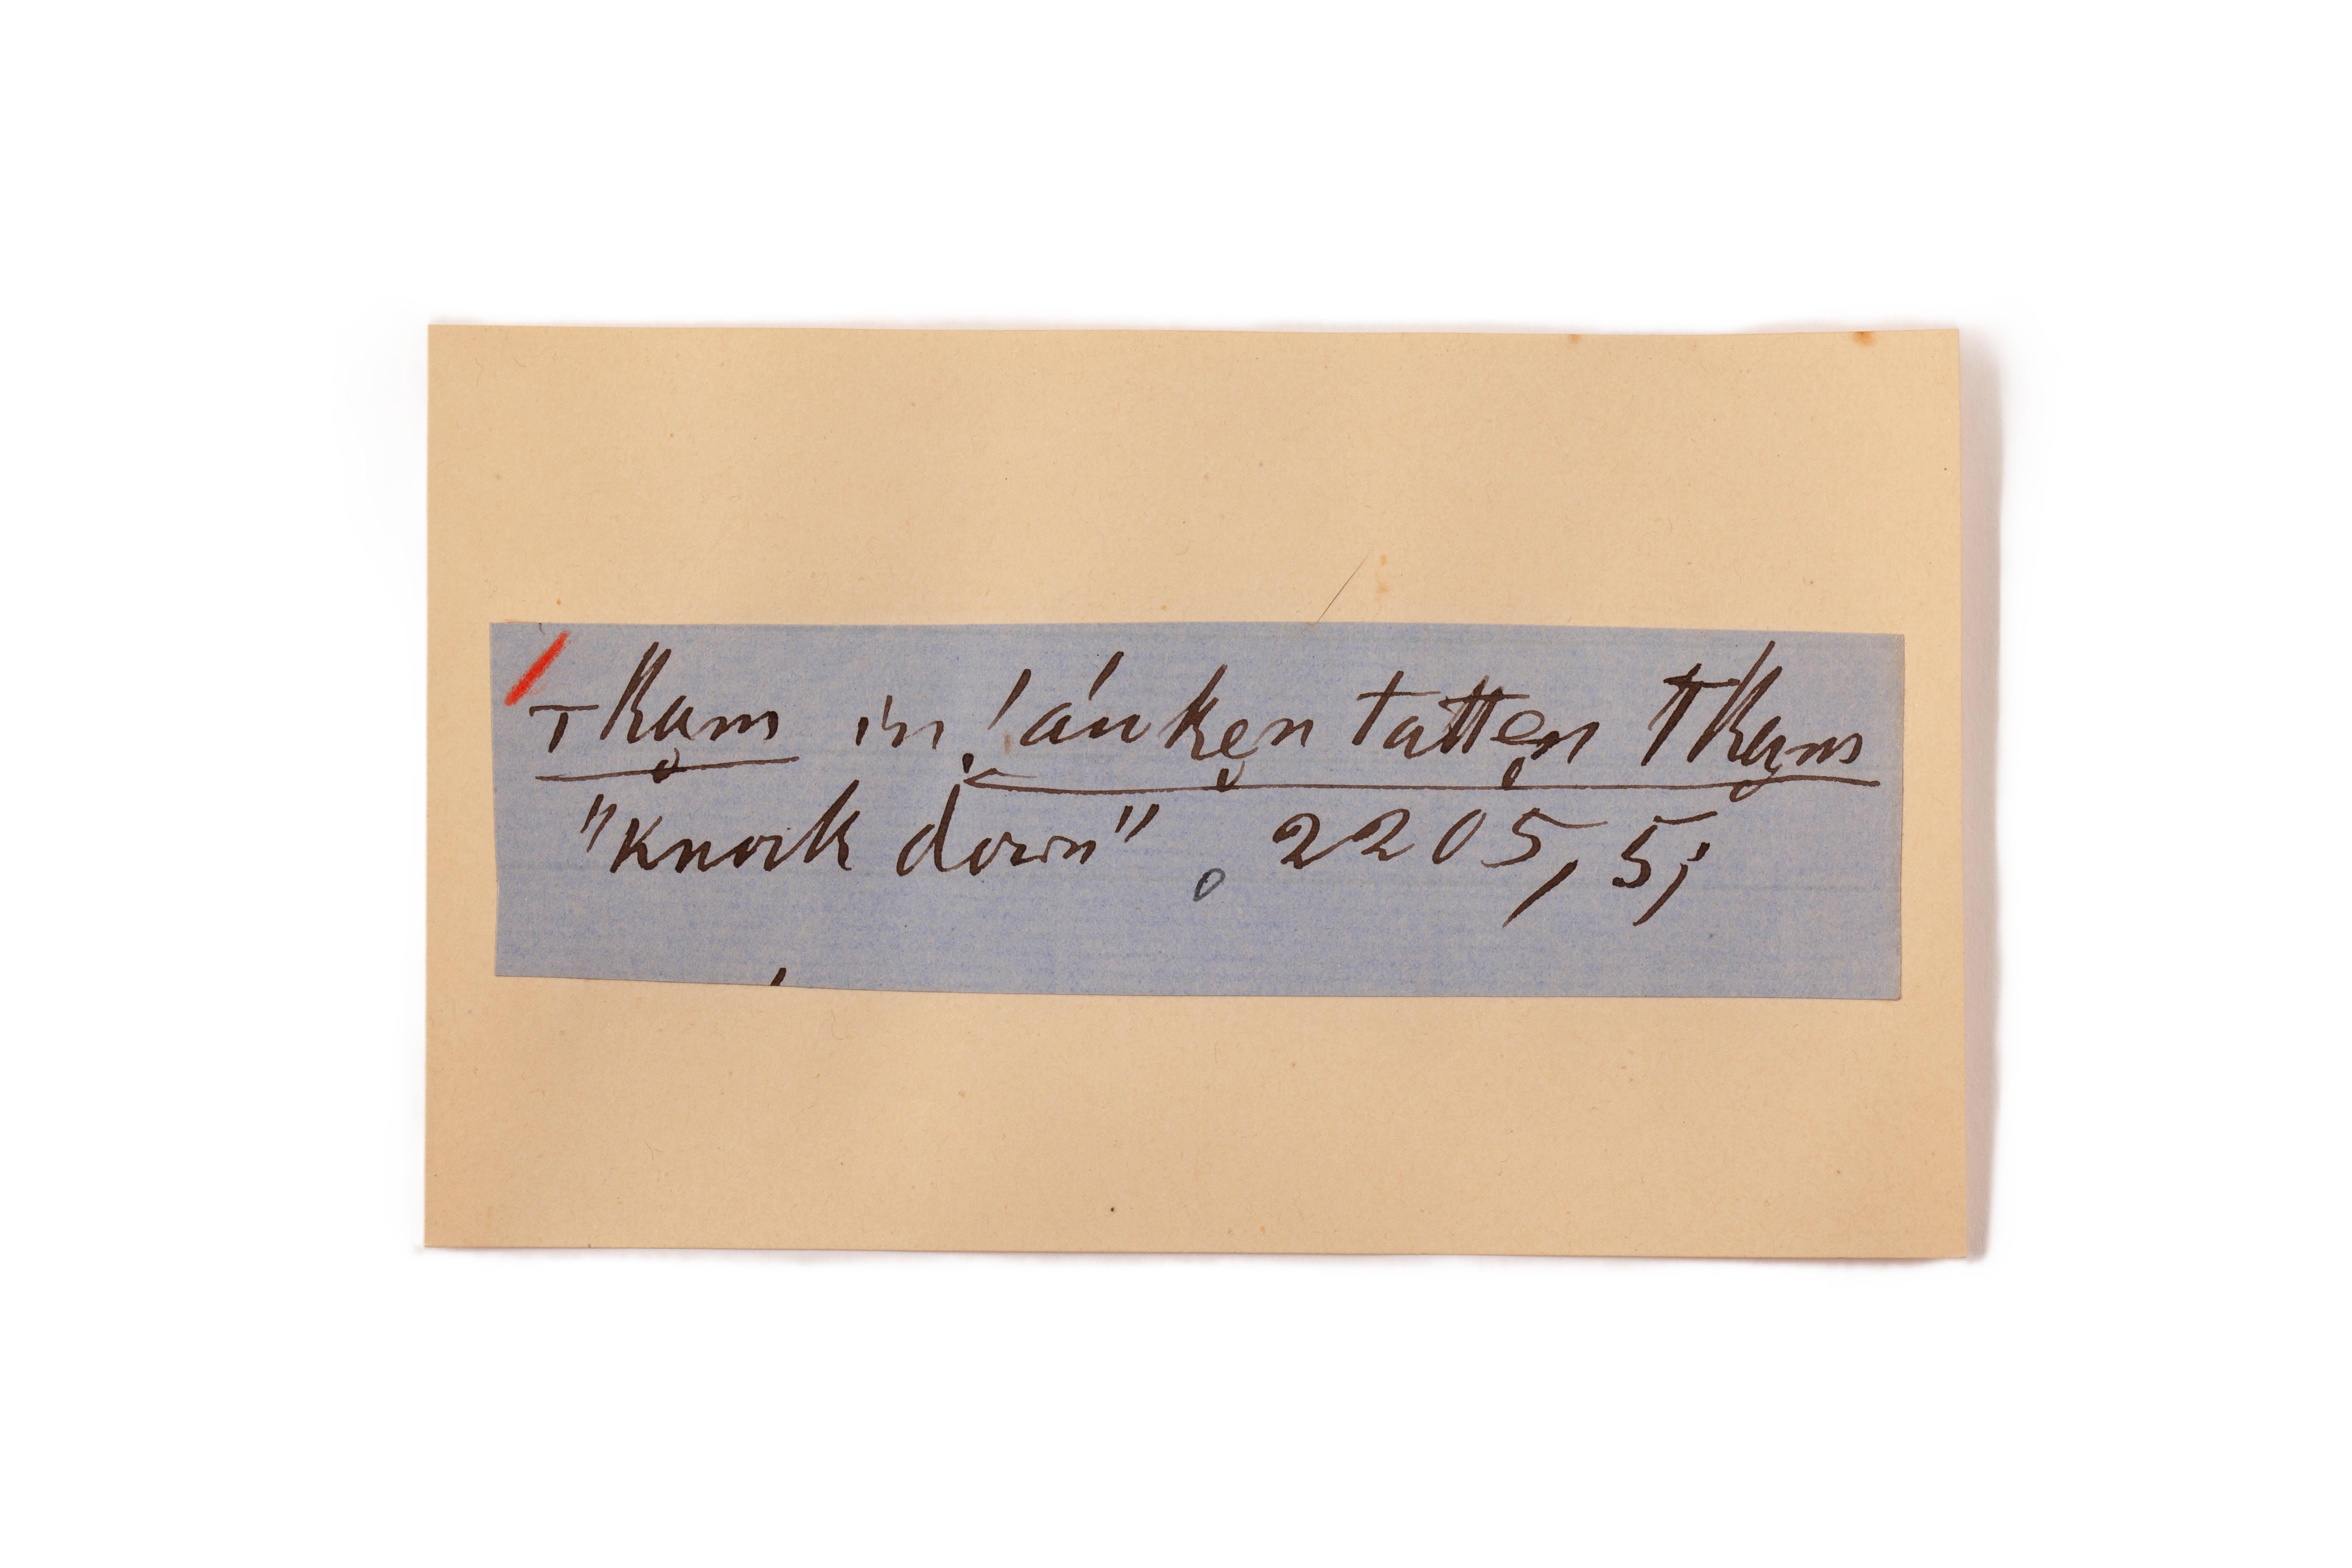 Tkạm in !áukẹn tattẹn Tkạm
"knock down", 2205, 5;